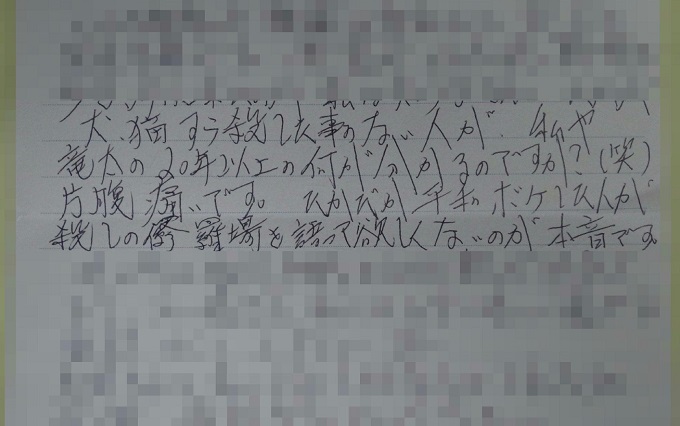 犬、猫すら殺した事のない人が、私や
竜太の20年以上の何が分かるのですか?(笑)
片腹痛いです。たかだか平和ボケした人が
殺しの修羅場を語って欲しくないのが本音です。